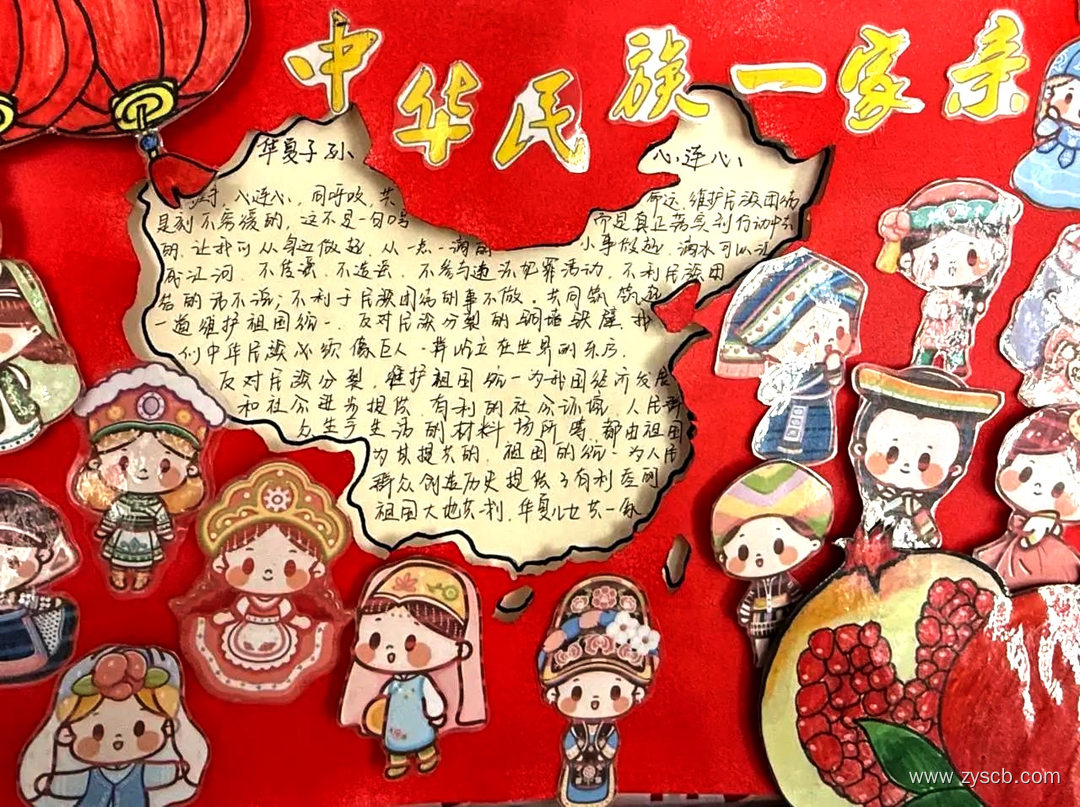 中华民族一家亲
华夏子孙 心连心
手，心连心，同呼吸，共 命运，维护民族团结
是刻不容缓的，这不是一句口号 而是真正落实到行动中去
的，让我们从身边做起，从一点一滴的 小事做起，滴水可以汇
成江河，不传谣，不造谣，不参与违法犯罪活动，不利民族团
结的话不说；不利于民族团结的事不做。共同筑
一道维护祖国统一，反对民族分裂的铜墙铁壁，我
们中华民族必须像巨人一群屹立在世界的东方。
反对民族分裂，维护祖国统一为我国经济发展
和社会进步提供有利的社会环境，人民群
众生产生活的材料场所等都由祖国
为其提供的，祖国的统一为人民
群众创造历史提供了有利空间
祖国大地共一利，华夏儿女共一
www.zyscb.com